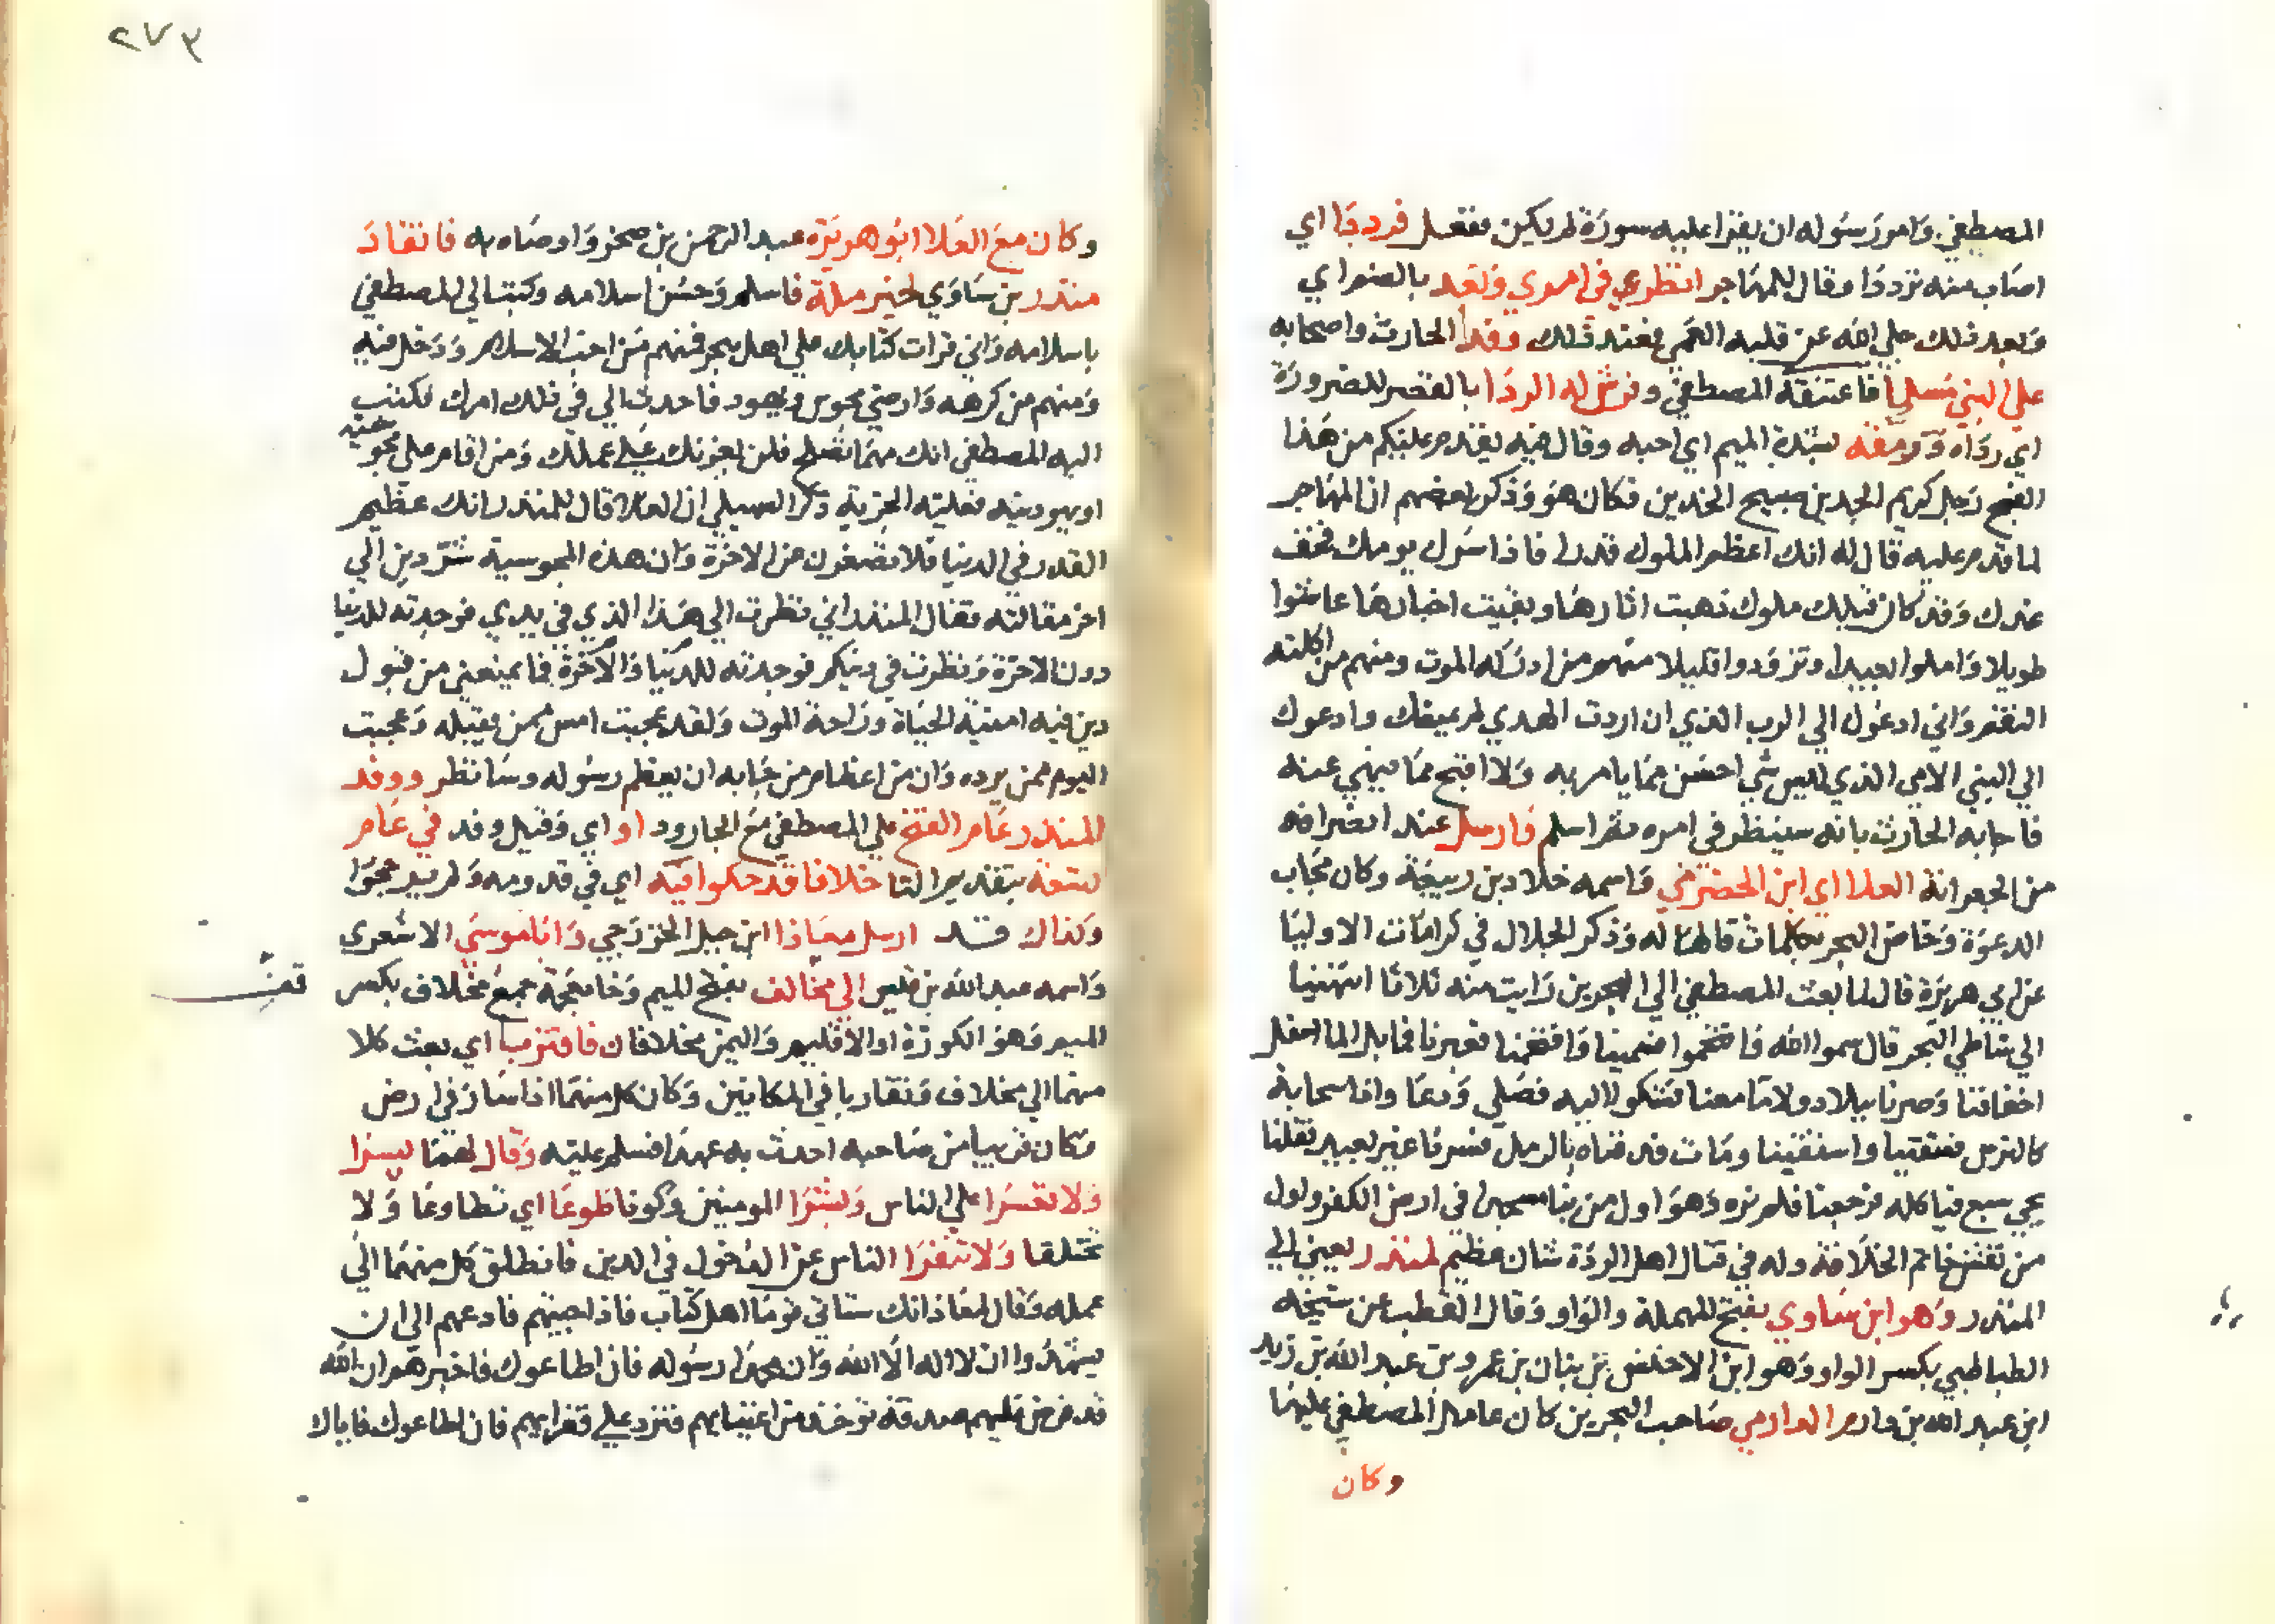 المصطفي وامر رسوله ان يقرا عليه سورة لم يكن ففعل فرددا اي
اصاب منه ترددا وقال للمهاجر انظرني في امري وبعد بالضم اي
وبعد ذلك جلي الله عن قلبه العمي فعند ذلك وفد الحارث واصحابه
علي النبي مسلما فاعتنقه المصطفي وفرش له الردا بالقصر للضرورة
اي رداه وومقه بشدة الميم اي احبه وقال فيه يقدم عليكم من هذا
الفج رجل كريم الجدين صبيح الخدين فكان هو وذكر بعضهم ان المهاجر
لما قدم عليه قال له انك اعظم الملوك قدرا فاذا سرك يومك فخف
غدك وقد كان قبلك ملوك ذهبت اثارها وبقيت اخبارها عاشوا
طويلا واملوا بعيدا وتزودوا قليلا منهم من ادركه الموت ومنهم من اكلته
النقم واني ادعوك الي الرب الذي ان اردت الهدي لم يمنعك وادعوك
الي النبي الامي الذي ليس شي احسن مما يامر به ولا اقبح مما ينهي عنه
فاجابه الحارث بانه سينظر في امره ثم اسلم فارسل عند انصرافه
من الجعرانة العلا اي ابن الحضرمي واسمه خلاد بن ربيعة وكان مجاب
الدعوة وخاض البحر بكلمات قالها له وذكر الجلال في كرامات الاوليا
عن ابي هريرة قال لما بعث المصطفي الي البحرين رايت منه ثلاثا انتهينا
الي شاطي البحر قال سموا الله فاقتحموا فسمينا واقتحمنا فعبرنا فما بل الما اسفل
اخفافنا وصرنا ببلاد ولا ما معنا فشكوا اليه فصلي ودعا واذا سحابة
كالترس فسقتنا واستقينا ومات فدفناه بالرمل فسرنا غير بعيد فقلنا
يجي سبع فياكله فرجعنا فلم نره وهو اول من بنا مسجدا في ارض الكفر واول
من نقش خاتم الخلافة وله في قتال اهل الردة شان عظيم لمنذر يعني الي
المنذر وهو ابن ساوي بفتح المهملة والواو وقال القطب عن شيخه
الطباطبي بكسر الواو وهو ابن الاخنس بن بنان بن عمرو بن عبد الله بن زيد
ابن عبد الله بن دارم الدارمي صاحب البحرين كان عامل المصطفي عليها
وكان
٢٧٣
وكان مع العلا ابو هريرة عبد الرحمن بن صخر واوصاه به فانقاد
منذر بن ساوي لخير ملة فاسلم وحسن اسلامه وكتب الي المصطفي
باسلامه واني قرات كتابك علي اهل هجر فمنهم من احب الاسلام ودخل فيه
ومنهم من كرهه وارضي مجوس ويهود فاحدث الي في ذلك امرك فكتب
اليه المصطفي انك مهما تصلح فلن نعزلك عن عملك ومن اقام علي مجوسيته
او يهوديته فعليه الجزية ذكر السهيلي ان العلا قال للمنذر انك عظيم
القدر في الدنيا فلا تصغرن عن الاخرة وان هذه المجوسية شر دين الي
اخر مقالته فقال المنذر اني نظرت الي هذا الذي في يدي فوجدته للدنيا
دون الاخرة ونظرت في دينكم فوجدته للدنيا والاخرة فما يمنعني من قبول
دين فيه امنية الحياة وراحة الموت ولقد عجبت امس ممن يقبله وعجبت
اليوم ممن يرده وان من اعظام من جا به ان يعظم رسوله وسانظر ووفد
المنذر عام الفتح علي المصطفي مع الجارود او اي وقيل وفد في عام
لتسعة بتقديم التا خلافا قد حكوا فيه اي في قدومه ولم يرجحوا
وكذاك قد ارسل معاذا ابن جبل الخزرجي وابا موسي الاشعري
واسمه عبد الله بن قيس الي مخالف بفتح الميم وخا معجمة جمع مخلاف بكسر
الميم وهو الكورة او الاقليم واليمن مخلافان فاقترب‍ا اي بعث كلا
منهما الي مخلاف وتقاربا في المكانين وكان كل منهما اذا سار في ارض
وكان قريبا من صاحبه احدث به عهدا فسلم عليه وقال لهما يسرا
ولا تعسرا علي الناس وبشرا المومنين وكونا طوعا اي تطاوعا ولا
تختلفا ولا تنفرا الناس عن الدخول في الدين فانطلق كل منهما الي
عمله وقال لمعاذ انك ستاتي قوما اهل كتاب فاذا جيتهم فادعهم الي ان
يشهدوا ان لا اله الا الله وان محمدا رسوله فان اطاعوك فاخبرهم ان الله
قد فرض عليهم صدقة توخذ من اغنيايهم فترد علي فقرايهم فان اطاعوك فاياك